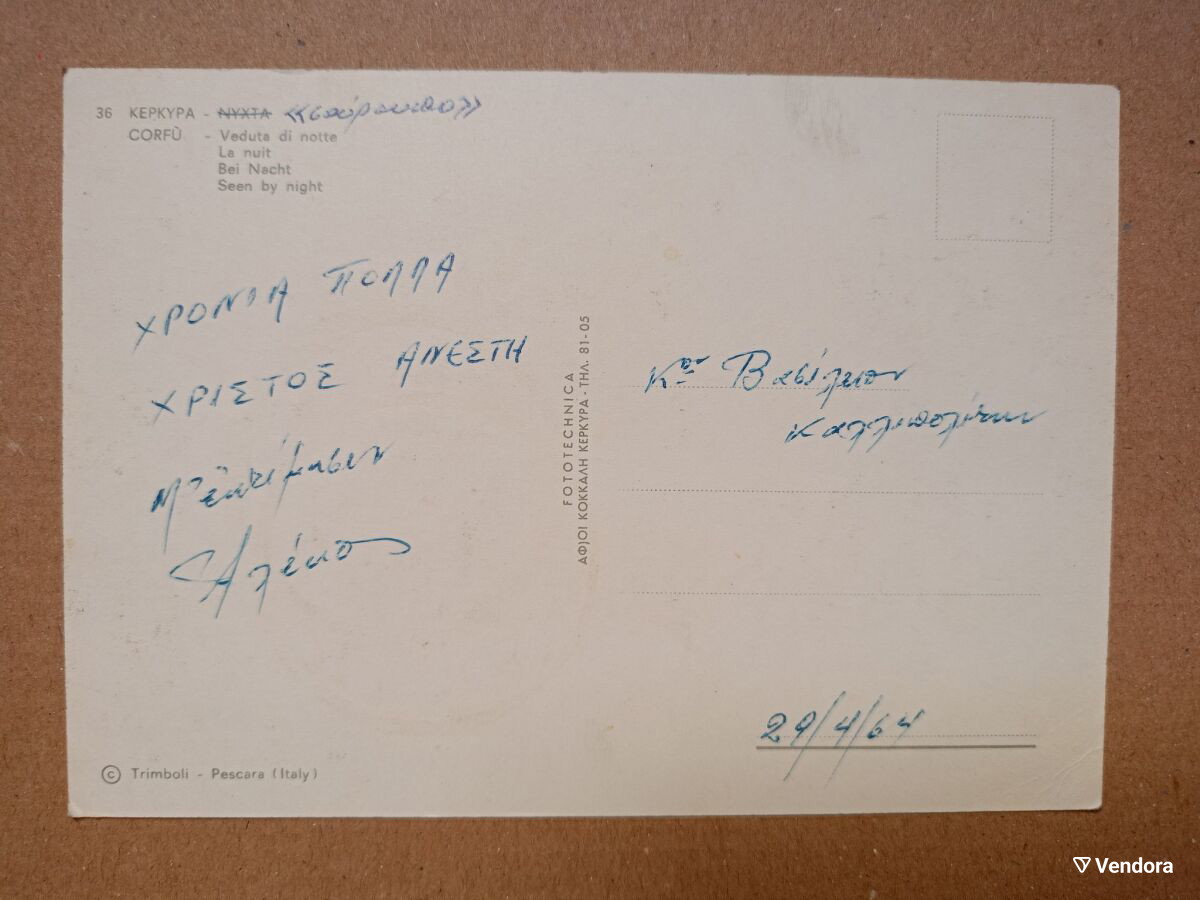 36 ΚΕΡΚΥΡΑ - ΝΥΧΤΑ
CORFÙ - Veduta di notte
La nuit
Bei Nacht
Seen by night
ΧΡΟΝΙΑ ΠΟΛΛΑ
ΧΡΙΣΤΟΣ ΑΝΕΣΤΗ
Μ' ἐκτίμησιν
Αλέκος
FOTOTECHNICA
ΑΦ)ΟΙ ΚΟΚΚΑΛΗ ΚΕΡΚΥΡΑ - ΤΗΛ. 81-05
Κον Βασίλειον
Καλλιπολίτην
29/4/64
© Trimboli - Pescara (Italy)
Vendora